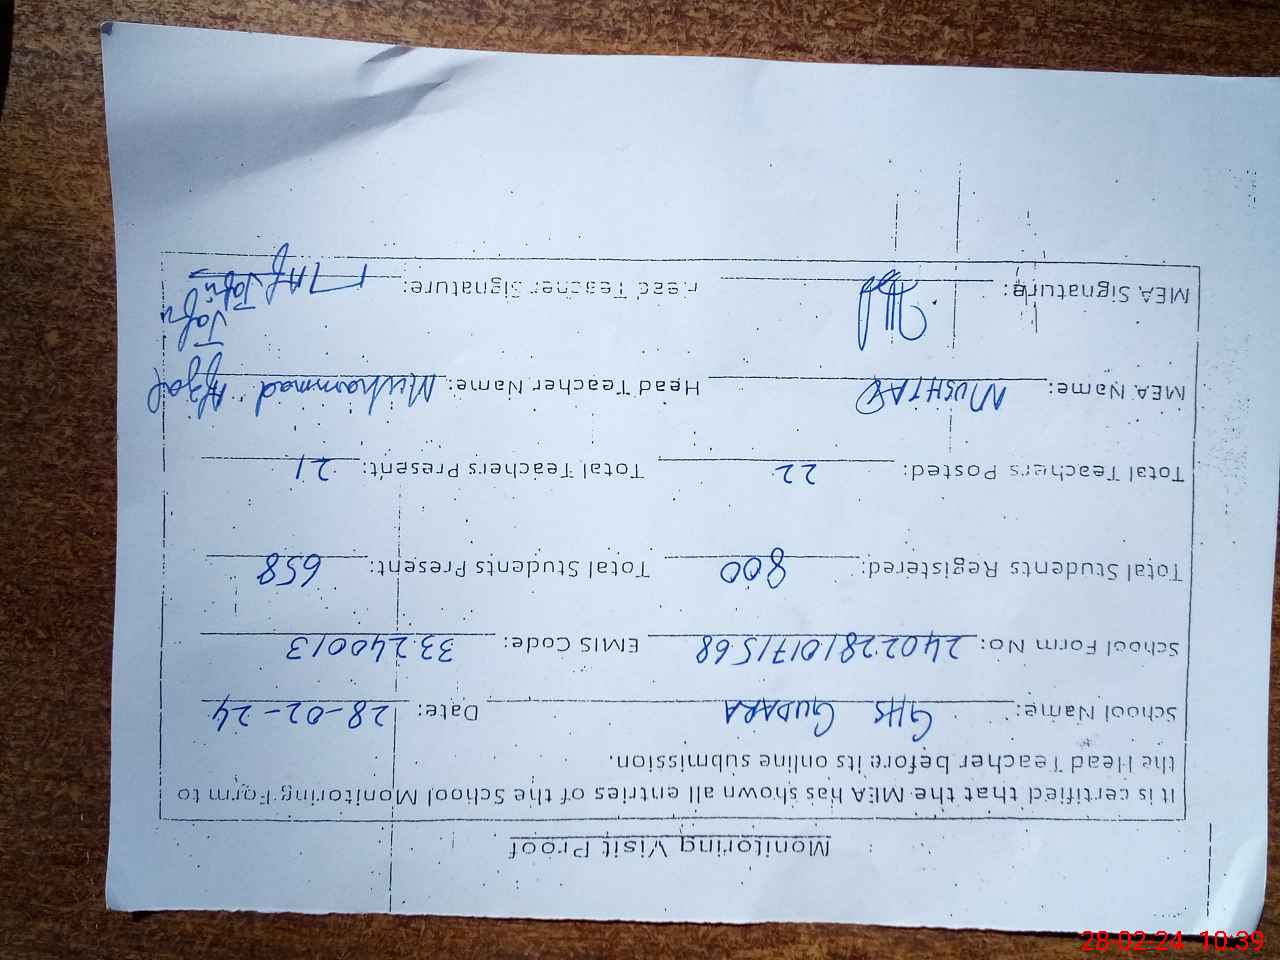 Monitoring Visit Proof
It is certified that the MEA has shown all entries of the School Monitoring Form to
the Head Teacher before its online submission.
School Name: GHS GUDARA Date: 28-02-24
School Form No: 24022810171568 EMIS Code: 33240013
Total Students Registered: 800 Total Students Present: 658
Total Teachers Posted: 22 Total Teachers Present: 21
MEA Name: MUSHTAQ Head Teacher Name: Muhammad Afzal
Jafri
MEA Signature: Head Teacher Signature:
28-02-24 10:39